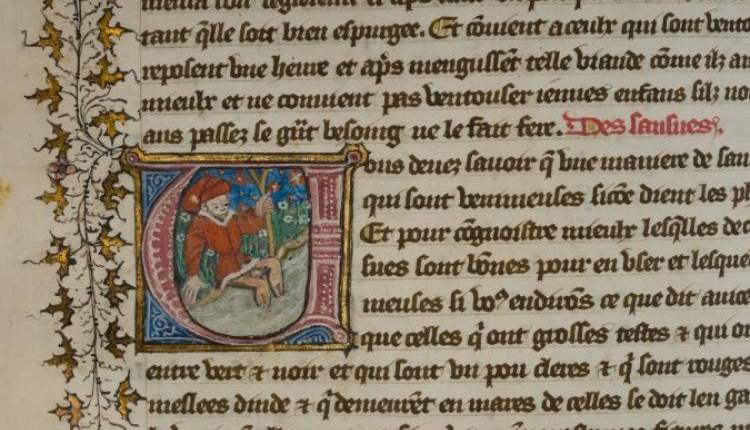 tant q̃lle soit bien espurgee. Et cõuient a ceulx qui sont vento
reposent vne heure et ap̃s mengussẽt telle viande cõme ilz au
mieulx et ne conuient pas ventouser ieunes enfans silz no
ans passez se gñt besoing ne le fait fere. Des sansues.
Vous deuez sauoir q̃ vne maniere de san
qui sont venimeuses sicõe dient les p
Et pour cõgnoistre mieulx lesq̃lles de
sues sont bõnes pour en vser et lesque
meuses si voꝰ endirõs ce que dit auice
que celles q̃ ont grosses testes ⁊ qui o
entre vert ⁊ noir et qui sont vn pou cleres ⁊ q̃ sont rouges
meslees dinde ⁊ q̃ demeurẽt en mares de celles se doit len ga